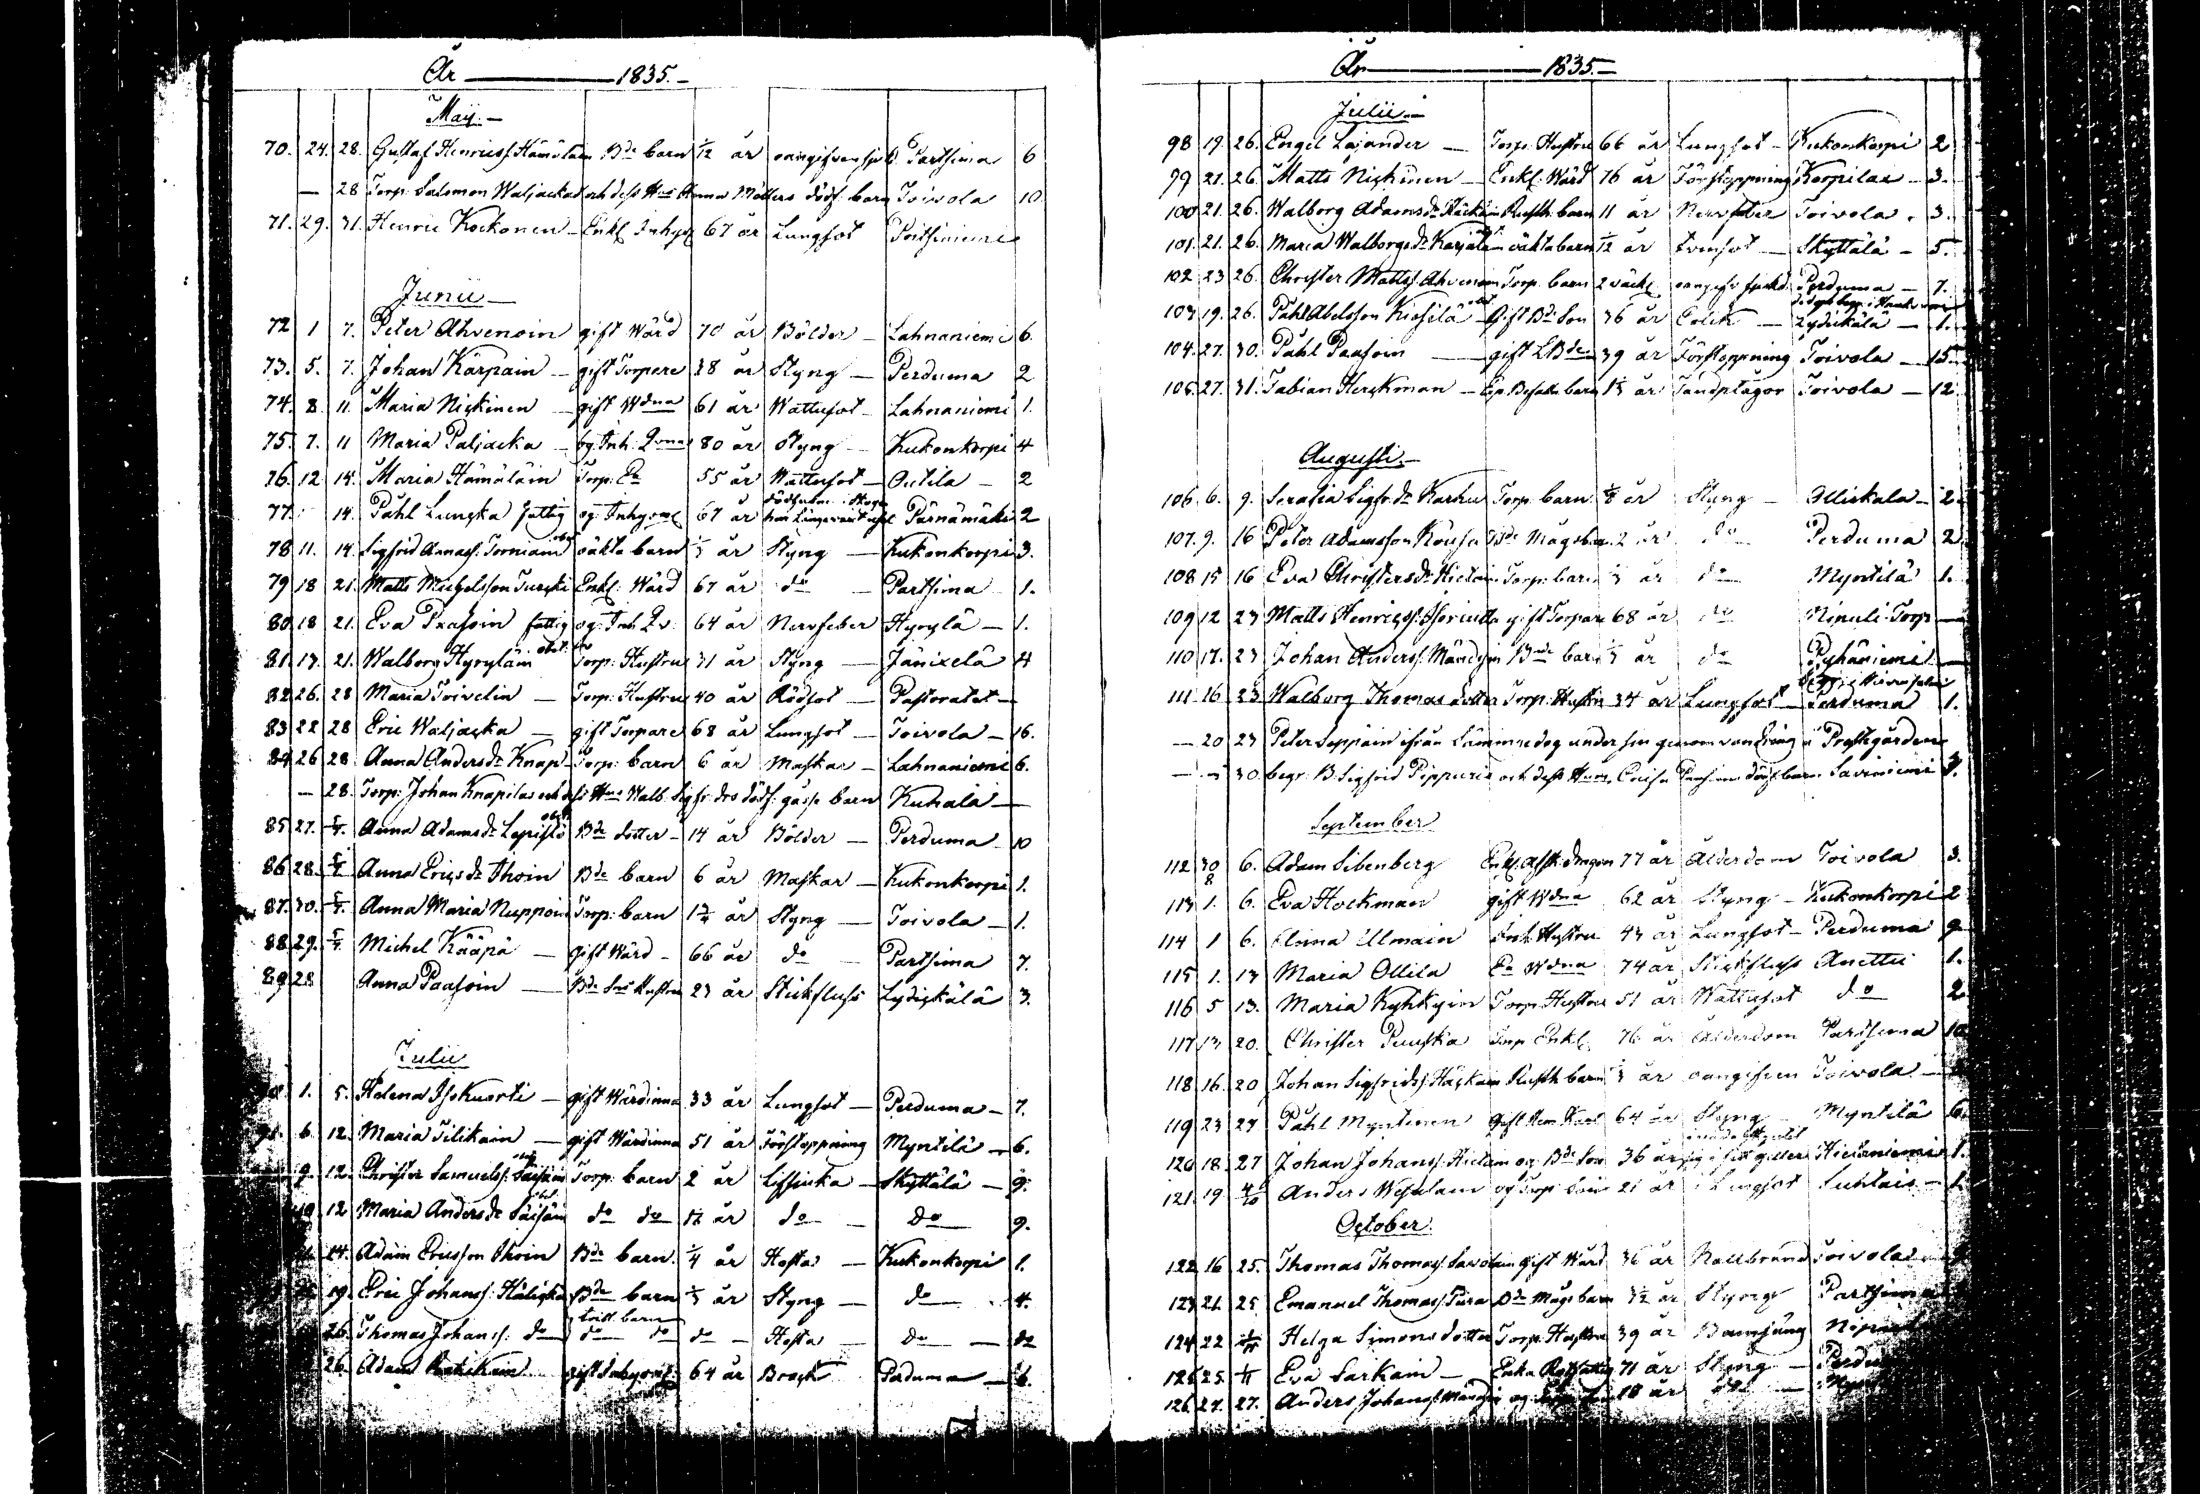 År 1835.
Maij.
70. 24. 28. Gustaf Henricss. Hämäläin Bde barn 1/12 år oangifven sjukd. Partsima 6
— 28 Torp. Salomon Waljacka och dess Hus Anna Matters dödf. barn Toivola 10
71. 29. 31. Henric Kockonen Enkl. Inhys. 67 år Lungsot Poitsiniemi
Junii
72 1 7. Peter Ahvenoin gift Wärd 70 år Bölder Lahnaniemi 6.
73. 5. 7. Johan Karpain gift Torpare 28 år Styng Perduma 2
74. 8. 11. Maria Nickinen gift Wdna 61 år Wattusot Lahnaniemi 1.
75. 7. 11 Maria Paljacka og. Inh. Qvna 80 år Styng Kukonkorpi 4
76. 12 14. Maria Hämäläin Torp. Ea 55 år Wattusot Outila 2
77. 14. Påhl Lungka fattig og. Inhys 67 år Pärnämäki 2
78 11. 14. Sigfrid Annass. Torniain oäkta barn år Styng Kukonkorpi 3.
79 18 21. Matts Michelsson Turcki Enkl. Wärd 67 år do Partsima 1.
80 18 21. Eva Paasoin fattig og. Inh. Qv. 64 år Nervfeber Hyrylä 1.
81. 17. 21. Walborg Hyryläin obst. Torp. Hustru 31 år Styng Jänixelä 4
82 26. 28 Maria Toivelin Torp. Hustru 40 år Rödsot Pastoratet
83 22 28 Eric Waljacka gift Torpare 68 år Lungsot Toivola 16.
84 26 28 Anna Andersdr Knap Torp. barn 6 år Maskar Lahnaniemi 6.
— 28. Torp. Johan Knapilas och dess Hus Walb. Sigfr. drs dödf. gosse barn Kuhala
85 27. 5/7. Anna Adamsdr Lepistö Bde dotter 14 år Bölder Perduma 10
86 28. 5/7. Anna Ericsdr Ihoin Bde barn 6 år Maskar Kukonkorpi 1.
87. 30. 5/7. Anna Maria Nuppoin Torp. barn 1 år Styng Toivola 1.
88 29. 5/7. Michel Kääpä gift Wärd 66 år do Partsima 7.
89 28 Anna Paasoin Bde Sons Hustru 23 år Stickfluss Lydickälä 3.
Julii
1. 5. Helena Isokuorti gift Wärdinna 33 år Lungsot Perduma 7.
6. 12. Maria Tilikain gift Wärdinna 51 år Förstoppning Myntilä 6.
9. 12. Christer Samuelss. Säisäin Torp. barn 2 år Lissinka Skyttälä 9.
12 Maria Andersdr Säisäin do do år do do 9.
14. Adam Ericsson Ihoin Bde barn 1/4 år Hosta Kukonkorpi 1.
19. Eric Johanss. Häkickä Bde barn år Styng do 4.
26. Thomas Johanss. do tvill. barn do do do Hosta do do
26. Adam gift Inhysing 64 år Bråck Paduma 6.
År 1835.
Julii
98 19. 26. Engel Lajander Torp. Hustru 66 år Lungsot Kukonkorpi 2
99 21. 26. Matts Nickinen Enkl. Wärd 76 år Förstoppning Korpilax 3.
100 21. 26. Walborg Adamsdr Rusth. barn 11 år Nervfeber Toivola 3.
101. 21. 26. Maria Walborgsdr Karjalain oäkta barn 1/12 år tvinsot Skyttälä 5.
102 23 26. Christer Mattss. Ahvenoin Torp. barn 2 veck. oangifv. sjukd. Perduma 7.
103 19. 26. Påhl Abelsson Kiesilä Gift Bde Son 36 år Colik Lydickälä 1.
104. 27. 30. Påhl Paasoin gift LBde 39 år Förstoppning Toivola 15
105. 27. 31. Fabian Herckman barn 1 år Tandplågor Toivola 12.
Augusti
106 6. 9. Serafia Sigfr. dr Karhu Torp. barn år Styng Olliskala 2
107. 9. 16 Peter Adamsson Bde Mågs b. 2 år do Perduma 2
108 15 16 Eva Christersdr Hietain Torp. barn år do Myntilä 1.
109 12 23 Matts Henricss. gift Torpare 68 år do Nipuli Torp
110 17. 23 Johan Anderss. Mändyin Bde barn år do Pyhäniemi
111 16 23 Walborg Thomas dotter Torp. Hustru 34 år Lungsot Perduma 1.
— 20 23 Peter Seppain ifrån dog under sin genomvandring i Prestgården
— 30. begr. B. Sigfrid Pippuris och dess Hus dödf. barn Saviniemi 3.
September
112 30/8 6. Adam Sibenberg Enkl. Afsk. dragon 77 år ålderdom Toivola 3.
113 1. 6. Eva Hockman gift Wdna 62 år Styng Kukonkorpi 2
114 1 6. Anna Ulmain Inh. Hustru 43 år Lungsot Perduma 9
115 1. 13 Maria Ollila Ea Wdna 74 år Stickfluss Anettu 1.
116 5 13. Maria Kyhkyin Torp. Hustru 51 år Wattusot do 2
117 13 20. Christer Puuska Torp. Enkl. 76 år Ålderdom Partsima 10
118 16. 20 Johan Sigfridss. Häckäin Rusth. barn år oangifven Toivola
119 23 27 Påhl Myntinen Gift Hem Karl 64 år Styng Myntilä 6.
120 18. 27 Johan Johanss. Hietain og. Bde Son 36 år Hietaniemi 1.
121. 19 4/10 Anders Wesalain og. Torp. Son 21 år Lungsot Suhlais 1.
October.
122 16 25. Thomas Thomass. Savolain Gift Wärd 36 år Kallbrand Toivola
123 21. 25 Emanuel Thomass. Pura Bde Mågs barn 3 1/2 år Styng Partsima
124 22 1/11 Helga Simons dotter Torp. Hustru 39 år Barnsäng
125 25 1/11 Eva Sarkain Enka 71 år Styng
126 27. 27. Anders Johanss. 18 år do